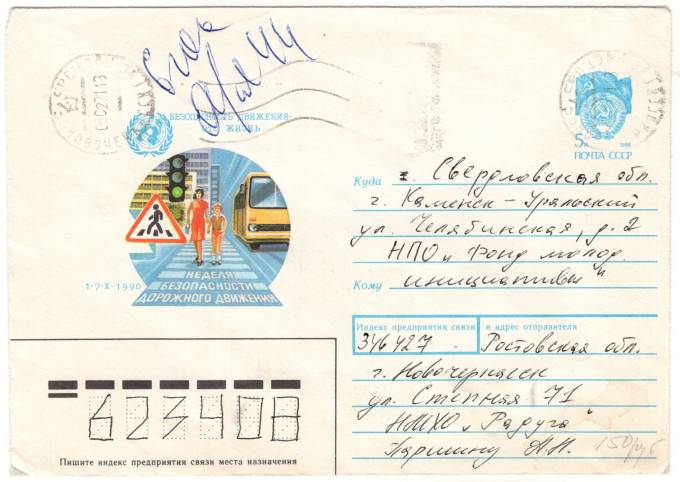 БЕЗОПАСНОСТЬ ДВИЖЕНИЯ-
ЖИЗНЬ
5к
1988
ПОЧТА СССР
Куда г. Свердловская обл.
г. Каменск-Уральский
ул. Челябинская, д. 2
НПО „Фонд молод.
Кому инициативы"
1-7·X·1990
НЕДЕЛЯ
БЕЗОПАСНОСТИ
ДОРОЖНОГО ДВИЖЕНИЯ
Индекс предприятия связи и адрес отправителя
346427 Ростовская обл.
г. Новочеркасск
ул. Степная 71
НМХО „Радуга"
Паршину А.Н.
150 руб
623408
Пишите индекс предприятия связи места назначения